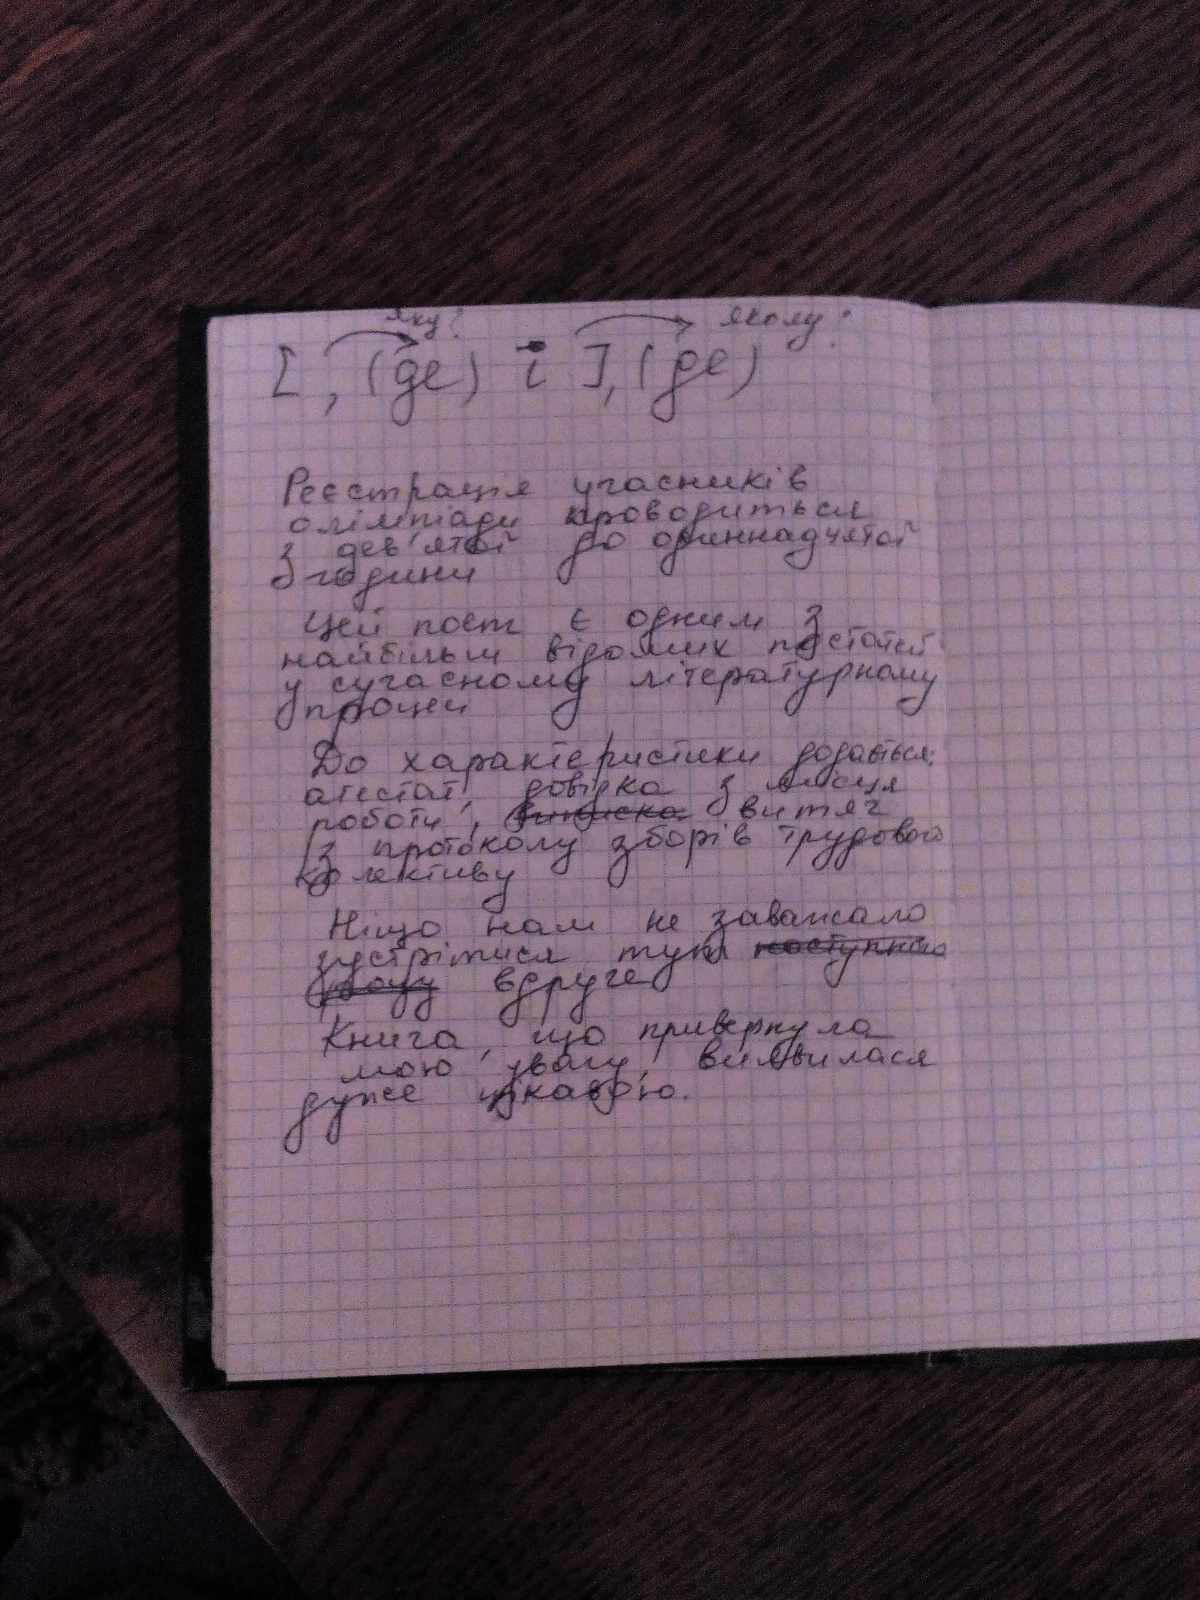 яку? якому?
[ , (де) і ], (де)
Реєстрація учасників
олімпіади проводиться
з дев'ятої до одиннадчятої
години
Цей поет є одним з
найбільш відомих постатей
у сучасному літературному
процеси
До характеристики додається:
атестат, довідка з місця
роботи, виписка витяг
з протоколу зборів трудового
колективу
Ніщо нам не заважало
зустрітися тут наступного
разу вдруге
Книга, що привернула
мою увагу, виявилася
дуже цікавою.